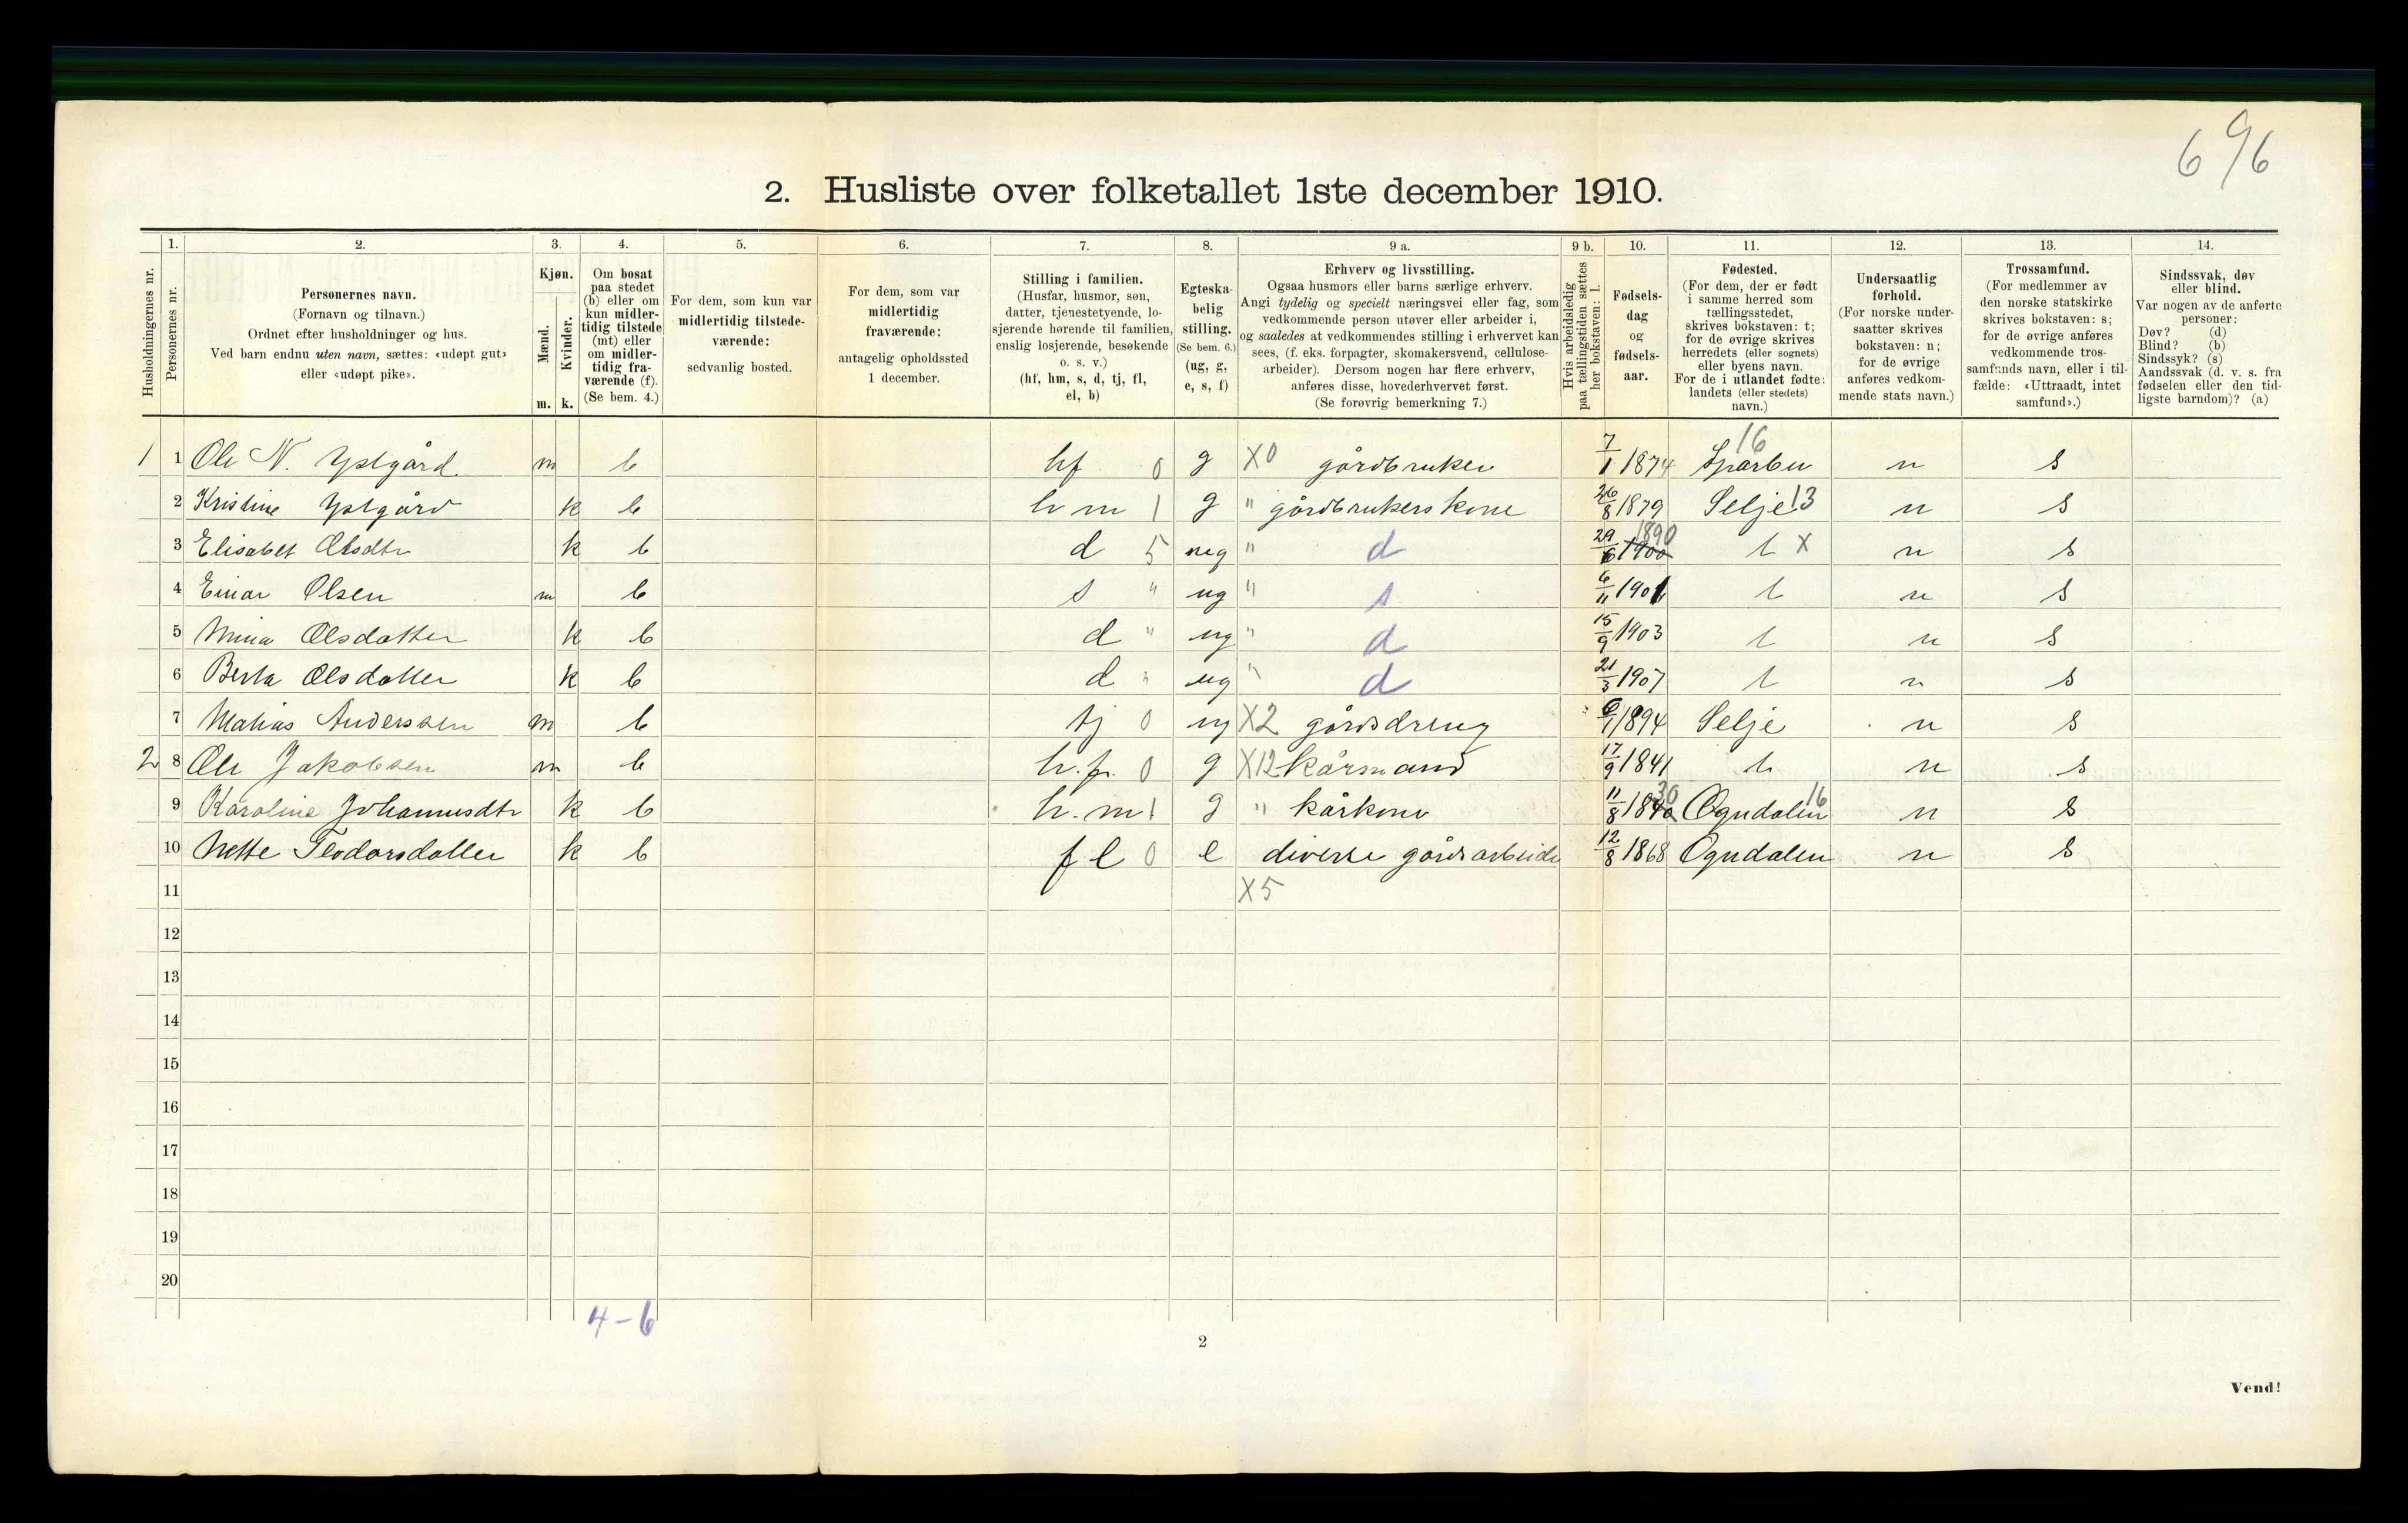 696
2. Husliste over folketallet 1ste december 1910.
Husholdningernes nr.
1. Personernes nr.
2. Personernes navn.
(Fornavn og tilnavn.)
Ordnet efter husholdninger og hus.
Ved barn endnu uten navn, sættes: «udøpt gut»
eller «udøpt pike».
3. Kjøn.
Mænd. Kvinder.
m. k.
4. Om bosat
paa stedet
(b) eller om
kun midler-
tidig tilstede
(mt) eller
om midler-
tidig fra-
værende (f).
(Se bem. 4.)
5. For dem, som kun var
midlertidig tilstede-
værende:
sedvanlig bosted.
6. For dem, som var
midlertidig
fraværende:
antagelig opholdssted
1 december.
7. Stilling i familien.
(Husfar, husmor, søn,
datter, tjenestetyende, lo-
sjerende hørende til familien,
enslig losjerende, besøkende
o. s. v.)
(hf, hm, s, d, tj, fl,
el, b)
8. Egteska-
belig
stilling.
(Se bem. 6.)
(ug, g,
e, s, f)
9 a. Erhverv og livsstilling.
Ogsaa husmors eller barns særlige erhverv.
Angi tydelig og specielt næringsvei eller fag, som
vedkommende person utøver eller arbeider i,
og saaledes at vedkommendes stilling i erhvervet kan
sees, (f. eks. forpagter, skomakersvend, cellulose-
arbeider). Dersom nogen har flere erhverv,
anføres disse, hovederhvervet først.
(Se forøvrig bemerkning 7.)
9 b. Hvis arbeidsledig
paa tællingstiden sættes
her bokstaven: l.
10. Fødsels-
dag
og
fødsels-
aar.
11. Fødested.
(For dem, der er født
i samme herred som
tællingsstedet,
skrives bokstaven: t;
for de øvrige skrives
herredets (eller sognets)
eller byens navn.
For de i utlandet fødte:
landets (eller stedets)
navn.)
12. Undersaatlig
forhold.
(For norske under-
saatter skrives
bokstaven: n;
for de øvrige
anføres vedkom-
mende stats navn.)
13. Trossamfund.
(For medlemmer av
den norske statskirke
skrives bokstaven: s;
for de øvrige anføres
vedkommende tros-
samfunds navn, eller i til-
fælde: «Uttraadt, intet
samfund».)
14. Sindssvak, døv
eller blind.
Var nogen av de anførte
personer:
Døv? (d)
Blind? (b)
Sindssyk? (s)
Aandssvak (d. v. s. fra
fødselen eller den tid-
ligste barndom)? (a)
16
1 1 Ole N. Ystgård m b hf 0 g X0 gårdbruker 7/1 1874 Sparbu n s
2 Kristine Ystgård k b hm 1 g " gårdbrukerskone 26/8 1879 Selje 13 n s
3 Elisabet Olsdtr k b d 5 ug " d 29/6 1900 1890 t X n s
4 Einar Olsen m b s " ug " s 6/11 1901 t n s
5 Mina Olsdatter k b d " ug " d 15/9 1903 t n s
6 Berta Olsdatter k b d " ug " d 21/3 1907 t n s
7 Matias Anderssen m b tj 0 ug X2 gårdsdreng 6/1 1894 Selje n s
2 8 Ole Jakobsen m b h.f. 0 g X12 kårmand 17/9 1841 t n s
9 Karoline Johannesdtr k b h.m 1 g " kårkone 11/8 1840 30 Ogndalen 16 n s
10 Nette Teodorsdatter k b fl 0 e diverse gårdsarbeide 12/8 1868 Ogndalen n s
11 X5
12
13
14
15
16
17
18
19
20
4-6
2
Vend!